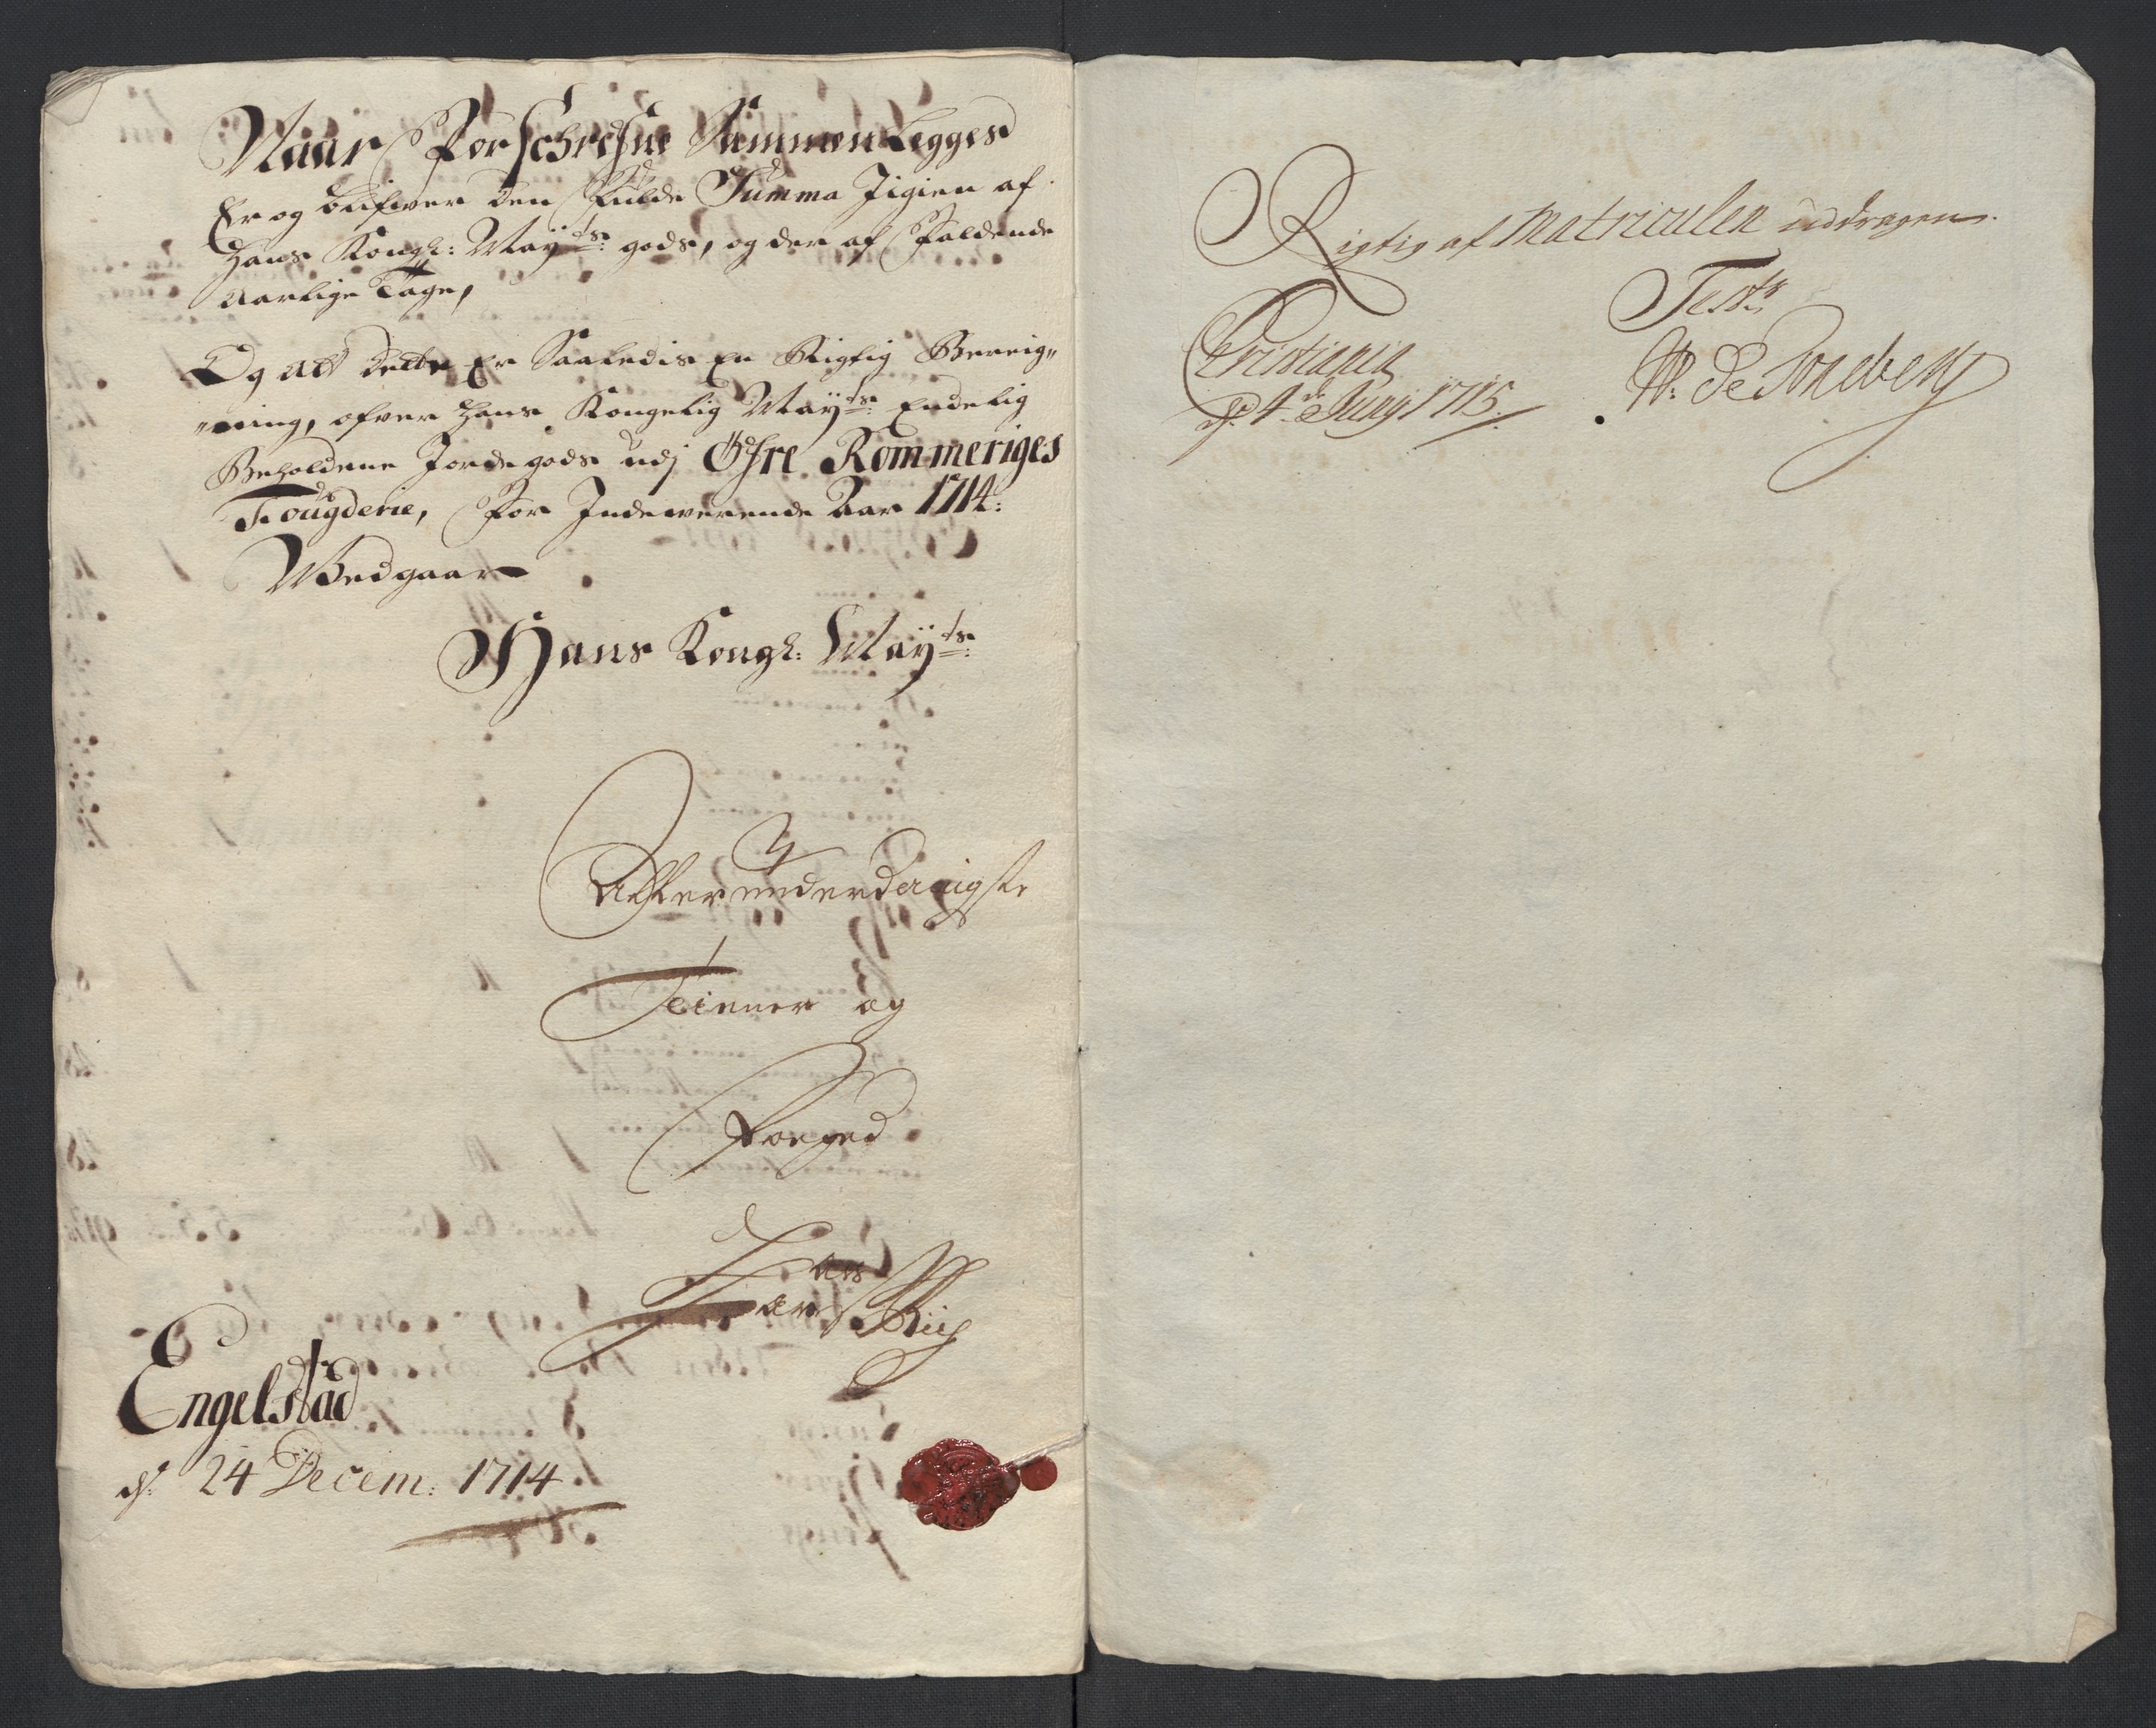 Naar Forschrefne Sammen Legges
Er og blifwer den Fulde Summa Igien af
Hans Kongl: Mayts: gods, og der af Faldende
Aarlige Tage,
Og att dette Er Saaledis En Rigtig Bereig„
„ning, ofver Hans Kongelig Mayts: Endelig
Beholdene Jordegods udj Öfre Rommeriges
Fougderie, For Indewerende Aar 1714:
Wedgaar
Hans Kongl: Mayts:
Allerunderdanigste
Teiener og
Foeged
Engelstad
d: 24 Decem: 1714
Rigtig af Matriculen uddragen.
Test:
Cristiania
d: 4de Juny 1715.